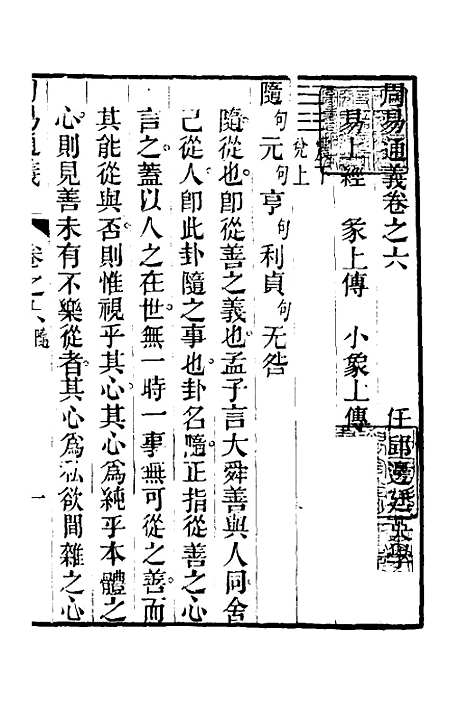 周易通義卷之六
任邱邊廷英學
易上經　彖上傳　小象上傳
兌上
隨句元句亨句利貞句无咎
隨從也卽從善之義也孟子言大舜善與人同舍
己從人卽此卦隨之事也卦名隨正指從善之心
言之蓋以人之在世無一時一事無可從之善而
其能從與否則惟視乎其心其心爲純乎本體之
心則見善未有不樂從者其心爲私欲間雜之心
周易通義　卷之六隨　一